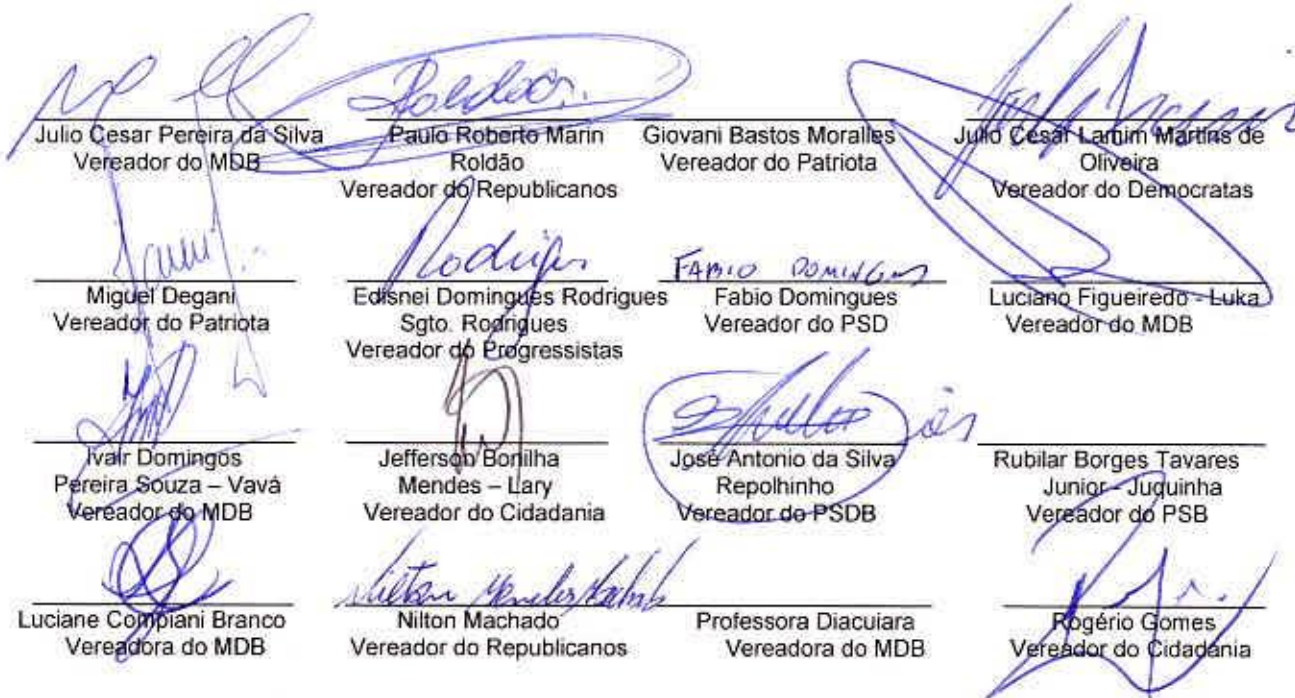 Roldão
Julio Cesar Pereira da Silva
Vereador do MDB
Paulo Roberto Marin
Roldão
Vereador do Republicanos
Giovani Bastos Moralles
Vereador do Patriota
Julio César Lamim Martins de
Oliveira
Vereador do Democratas
Rodrigues
FABIO DOMINGUES
Miguel Degani
Vereador do Patriota
Edisnei Domingues Rodrigues
Sgto. Rodrigues
Vereador do Progressistas
Fabio Domingues
Vereador do PSD
Luciano Figueiredo - Luka
Vereador do MDB
Ivair Domingos
Pereira Souza – Vavá
Vereador do MDB
Jefferson Bonilha
Mendes – Lary
Vereador do Cidadania
José Antonio da Silva
Repolhinho
Vereador do PSDB
Rubilar Borges Tavares
Junior - Juquinha
Vereador do PSB
Nilton Mendes Machado
Luciane Compiani Branco
Vereadora do MDB
Nilton Machado
Vereador do Republicanos
Professora Diacuiara
Vereadora do MDB
Rogério Gomes
Vereador do Cidadania